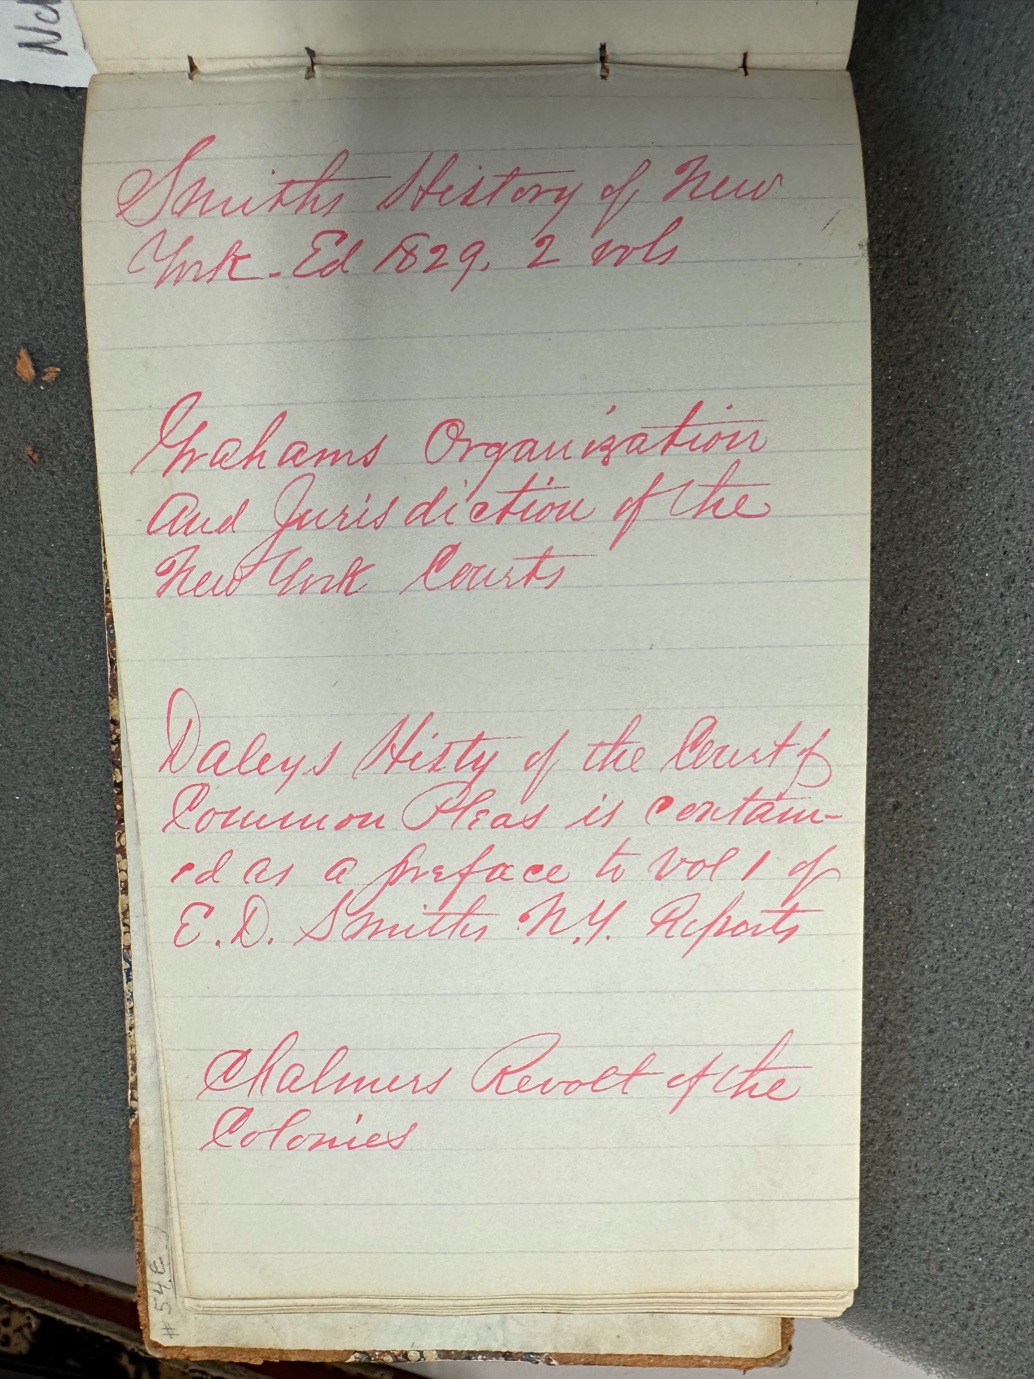 Smiths History of New
York. Ed 1829. 2 vols
Grahams Organization
And Jurisdiction of the
New York Courts
Daleys Histy of the Court of
Common Pleas is contain-
ed as a preface to Vol 1 of
E. D. Smiths N.Y. Reports
Chalmers Revolt of the
Colonies
# 54E